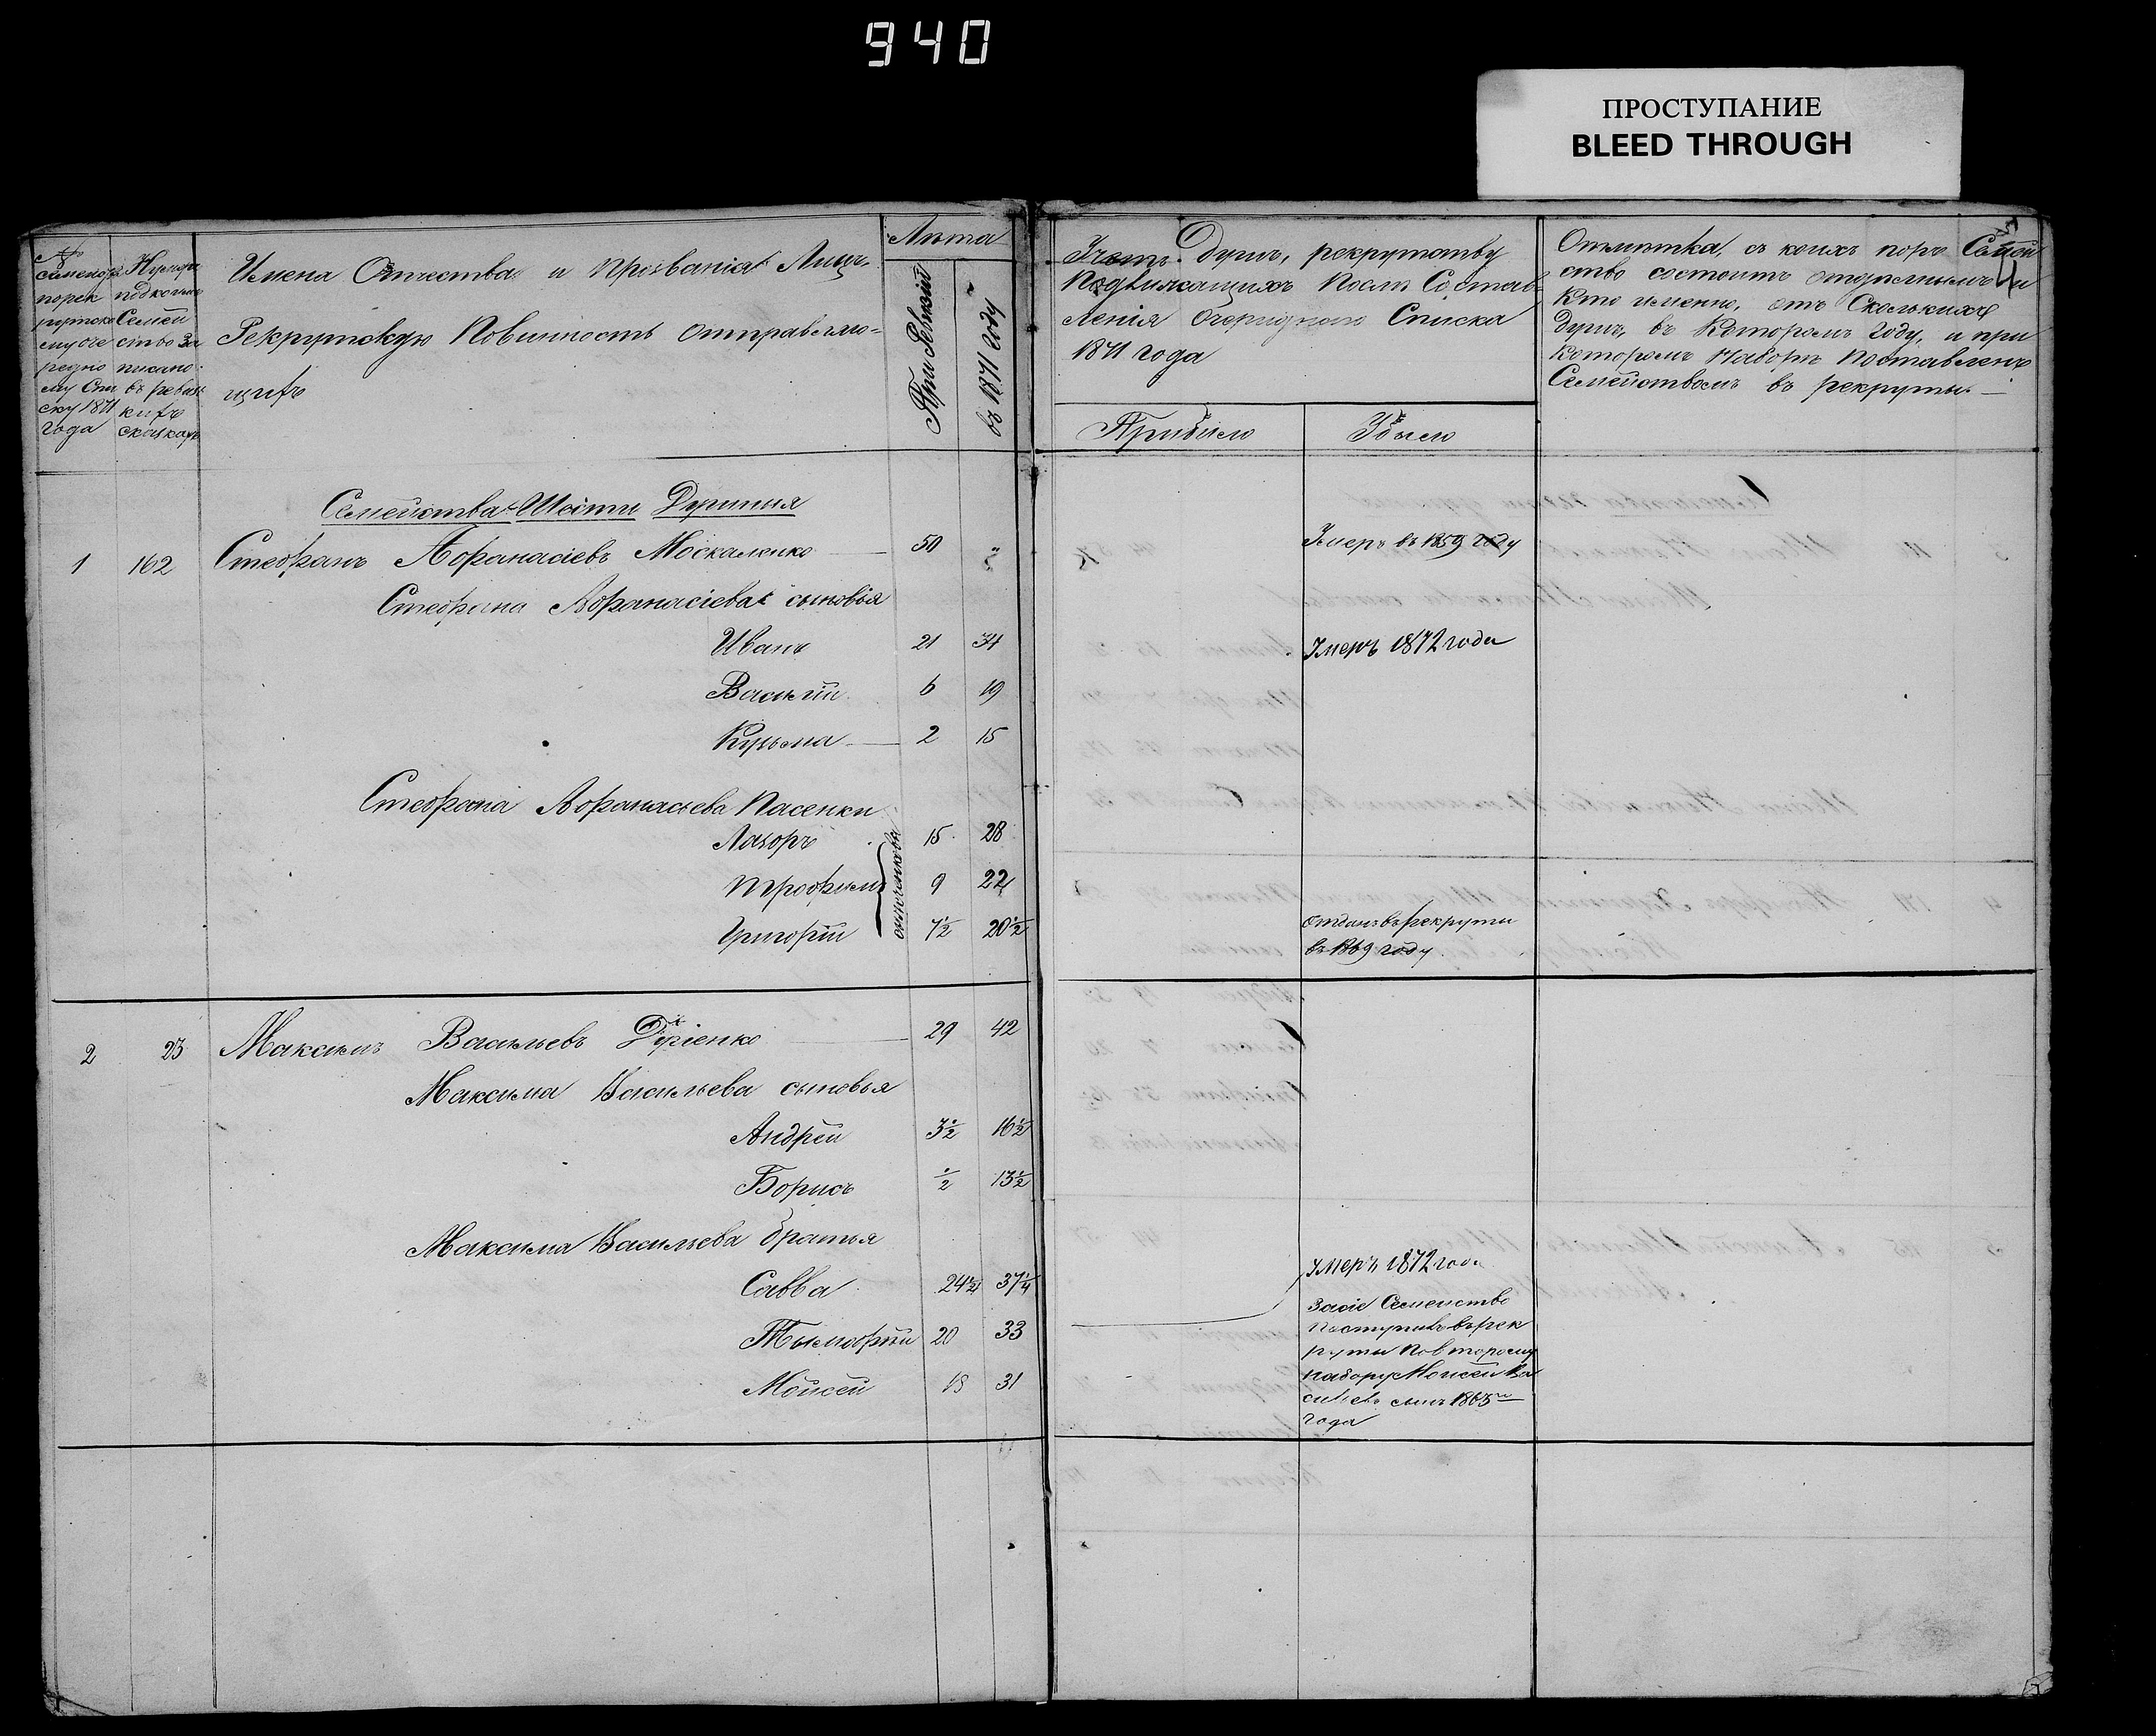 940
ПРОСТУПАНИЕ
BLEED THROUGH
№ семей по рек
рутско
му оче
редно
му Спи
ску 1871
года
Нумера
под коимъ
Семей
ство За
писано
въ ревиз
кихъ
сказкахъ
Имена Отчества и Прозванія Лицъ,
Рекрутскую Повинность отправляю-
щихъ
Лѣта
При Ревизіи
въ 1871 году
Учетъ Душъ, рекрутству
Подлежащихъ Послѣ Состав
ленія очереднаго Списка
1871 года
Прибыло
Убыло
Отмѣтка, съ коихъ поръ Семей
ство состоитъ отдѣльнымъ и
Кто именно, отъ Сколькихъ
Душъ, въ Которомъ году, и при
Которомъ Наборѣ Поставлено
Семействомъ въ рекруты.—
Семейства Шести Душныя
1 162 Стефанъ Афанасіевъ Москаленко 50 " Умеръ въ 1859 году
Стефана Афанасіева сыновья
Иванъ 21 34 Умеръ 1872 года
Василій 6 19
Кузьма 2 15
Стефана Афанасьева Пасенки
Лазоръ 15 28
Трофимъ 9 22
Григорій 7½ 20½ отданъ въ рекруты
въ 1869 году
2 23 Максимъ Васильевъ 29 42
Максима Васильева сыновья
Андрей 3½ 16½
Борисъ ½ 13½
Максима Васильева братья
Савва 24¼ 37¼ Умеръ 1872 года
Тымофѣй 20 33
Моисей 18 31
За сіе Семейство
поступилъ въ рек
руты по второму
набору Моисей Ва
сильевъ сынъ 1863го
года